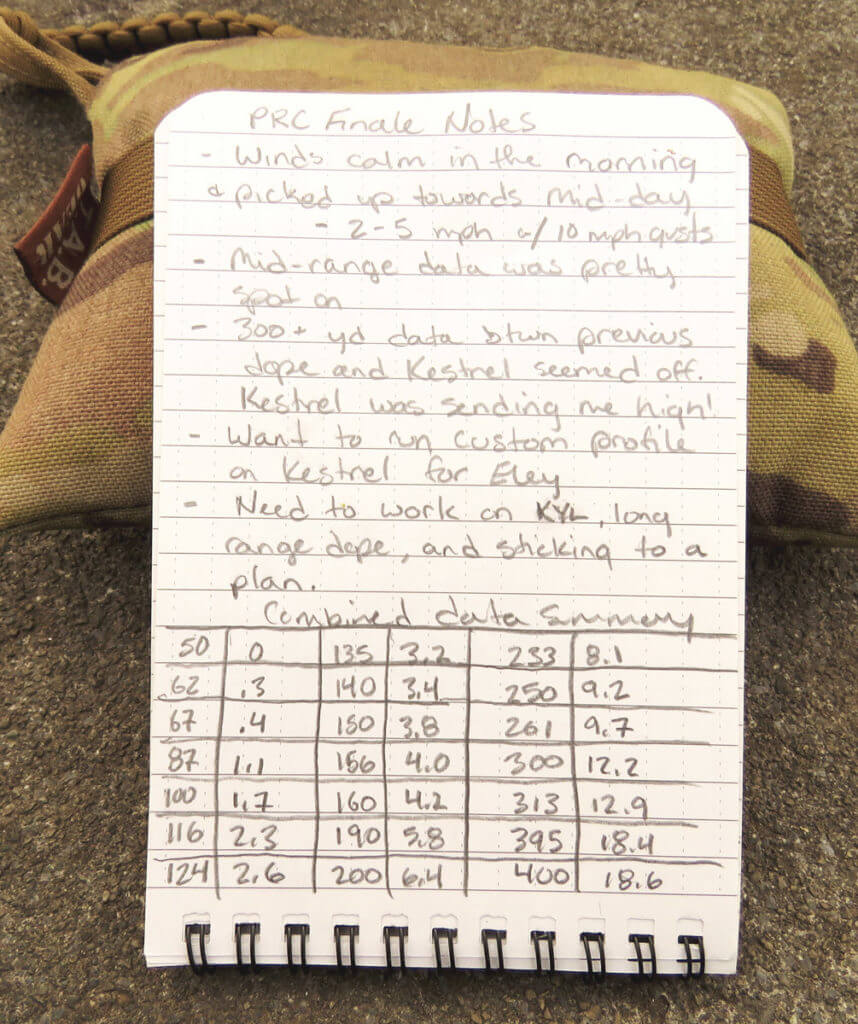 PRC Finale Notes
- Winds calm in the morning
& picked up towards Mid-day
- 2-5 mph w/ 10 mph gusts
- Mid-range data was pretty
spot on
- 300+ yd data btwn previous
dope and Kestrel seemed off.
Kestrel was sending me high!
- Want to run custom profile
on Kestrel for Eley
- Need to work on KYL, long
range dope, and sticking to a
plan.
Combined data summary
50 0 135 3.2 233 8.1
62 .3 140 3.4 250 9.2
67 .4 150 3.8 261 9.7
87 1.1 156 4.0 300 12.2
100 1.7 160 4.2 313 12.9
116 2.3 190 5.8 395 18.4
124 2.6 200 6.4 400 18.6
T.A.B.
GEAR